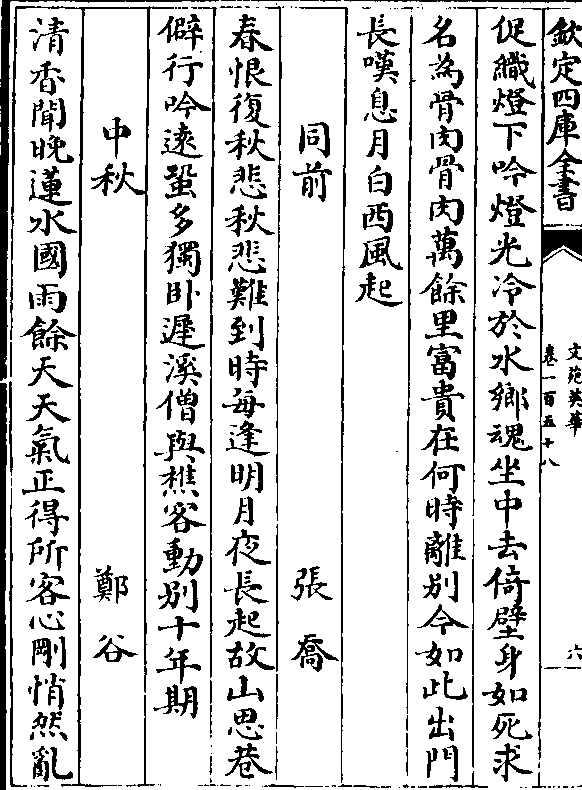 欽定四庫全書
文苑英華
卷一百五十八
六
促織燈下吟燈光冷於水鄉魂坐中去倚壁身如死求
名為骨肉骨肉萬餘里富貴在何時離别今如此出門
長嘆息月白西風起
同前 張喬
春恨復秋悲秋悲難到時每逢明月夜長起故山思巷
僻行吟遠蛩多獨卧遲溪僧與樵客動别十年期
中秋 鄭谷
清香聞晚蓮水國雨餘天天氣正得所客心剛悄然亂